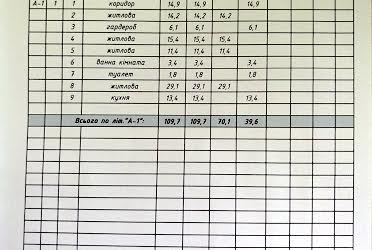 А-1 1 1 коридор 14,9 14,9 14,9
2 житлова 14,2 14,2 14,2
3 гардероб 6,1 6,1 6,1
4 житлова 15,4 15,4 15,4
5 житлова 11,4 11,4 11,4
6 ванна кімната 3,4 3,4 3,4
7 туалет 1,8 1,8 1,8
8 житлова 29,1 29,1 29,1
9 кухня 13,4 13,4 13,4
Всього по літ."А-1": 109,7 109,7 70,1 39,6